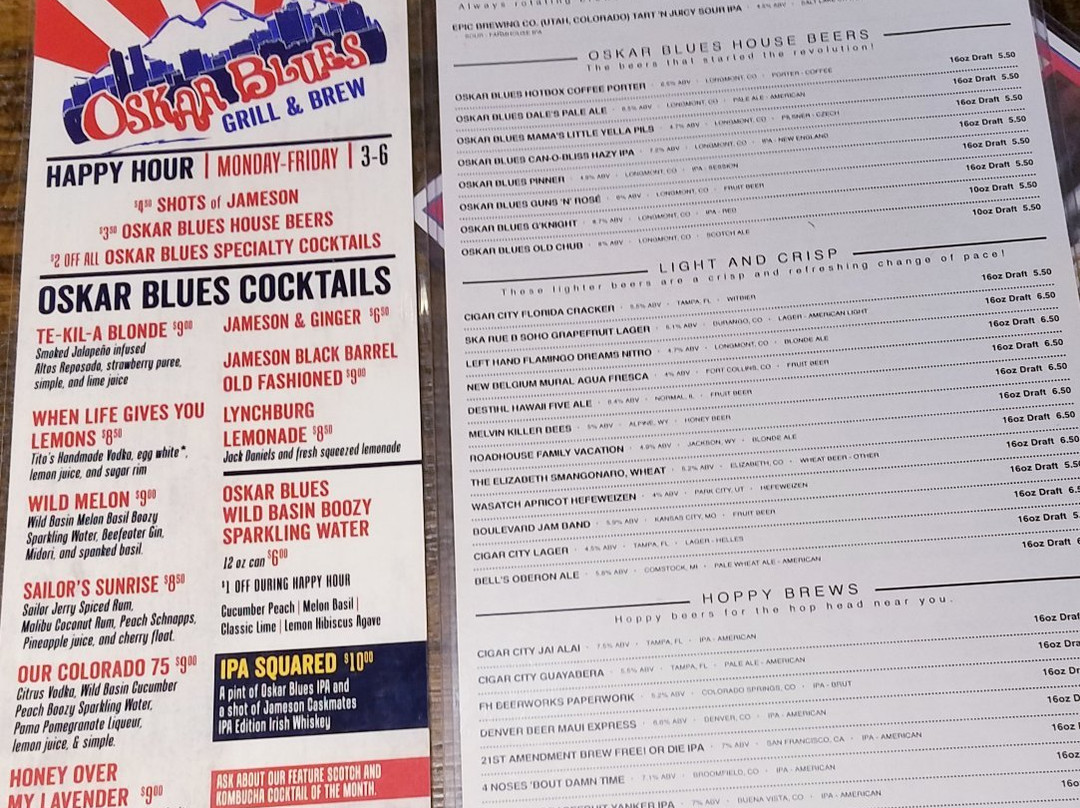 OSKAR BLUES
GRILL & BREW
HAPPY HOUR | MONDAY-FRIDAY | 3-6
$4.50 SHOTS of JAMESON
$3.50 OSKAR BLUES HOUSE BEERS
$2 OFF ALL OSKAR BLUES SPECIALTY COCKTAILS
OSKAR BLUES COCKTAILS
TE-KIL-A BLONDE $9.00
Smoked Jalapeño infused
Altos Reposado, strawberry puree,
simple, and lime juice
WHEN LIFE GIVES YOU
LEMONS $8.50
Tito's Handmade Vodka, egg white*,
lemon juice, and sugar rim
WILD MELON $9.00
Wild Basin Melon Basil Boozy
Sparkling Water, Beefeater Gin,
Midori, and spanked basil.
SAILOR'S SUNRISE $8.50
Sailor Jerry Spiced Rum,
Malibu Coconut Rum, Peach Schnapps,
Pineapple juice, and cherry float.
OUR COLORADO 75 $9.00
Citrus Vodka, Wild Basin Cucumber
Peach Boozy Sparkling Water,
Pama Pomegranate Liqueur,
lemon juice, & simple.
HONEY OVER
MY LAVENDER $9.00
JAMESON & GINGER $6.50
JAMESON BLACK BARREL
OLD FASHIONED $9.00
LYNCHBURG
LEMONADE $8.50
Jack Daniels and fresh squeezed lemonade
OSKAR BLUES
WILD BASIN BOOZY
SPARKLING WATER
12 oz can $6.00
$1 OFF DURING HAPPY HOUR
Cucumber Peach | Melon Basil |
Classic Lime | Lemon Hibiscus Agave
IPA SQUARED $10.00
A pint of Oskar Blues IPA and
a shot of Jameson Caskmates
IPA Edition Irish Whiskey
ASK ABOUT OUR FEATURE SCOTCH AND
KOMBUCHA COCKTAIL OF THE MONTH.
Always rotating
EPIC BREWING CO. (UTAH, COLORADO) TART 'N JUICY SOUR IPA · 4.5% ABV · SALT LAKE
SOUR - FARMHOUSE IPA
OSKAR BLUES HOUSE BEERS
The beers that started the revolution!
OSKAR BLUES HOTBOX COFFEE PORTER · 6.5% ABV · LONGMONT, CO · PORTER - COFFEE 16oz Draft 5.50
OSKAR BLUES DALE'S PALE ALE · 6.5% ABV · LONGMONT, CO · PALE ALE - AMERICAN 16oz Draft 5.50
OSKAR BLUES MAMA'S LITTLE YELLA PILS · 4.7% ABV · LONGMONT, CO · PILSNER - CZECH 16oz Draft 5.50
OSKAR BLUES CAN-O-BLISS HAZY IPA · 7.2% ABV · LONGMONT, CO · IPA - NEW ENGLAND 16oz Draft 5.50
OSKAR BLUES PINNER · 4.9% ABV · LONGMONT, CO · IPA - SESSION 16oz Draft 5.50
OSKAR BLUES GUNS 'N' ROSÉ · 6% ABV · LONGMONT, CO · FRUIT BEER 16oz Draft 5.50
OSKAR BLUES G'KNIGHT · 8.7% ABV · LONGMONT, CO · IPA - RED 10oz Draft 5.50
OSKAR BLUES OLD CHUB · 8% ABV · LONGMONT, CO · SCOTCH ALE 10oz Draft 5.50
LIGHT AND CRISP
These lighter beers are a crisp and refreshing change of pace!
CIGAR CITY FLORIDA CRACKER · 5.5% ABV · TAMPA, FL · WITBIER 16oz Draft 5.50
SKA RUE B SOHO GRAPEFRUIT LAGER · 5.1% ABV · DURANGO, CO · LAGER - AMERICAN LIGHT 16oz Draft 6.50
LEFT HAND FLAMINGO DREAMS NITRO · 4.7% ABV · LONGMONT, CO · BLONDE ALE 16oz Draft 6.50
NEW BELGIUM MURAL AGUA FRESCA · 4% ABV · FORT COLLINS, CO · FRUIT BEER 16oz Draft 6.50
DESTIHL HAWAII FIVE ALE · 6.4% ABV · NORMAL, IL · FRUIT BEER 16oz Draft 6.50
MELVIN KILLER BEES · 5% ABV · ALPINE, WY · HONEY BEER 16oz Draft 6.50
ROADHOUSE FAMILY VACATION · 4.9% ABV · JACKSON, WY · BLONDE ALE 16oz Draft 6.50
THE ELIZABETH SMANGONARO, WHEAT · 5.2% ABV · ELIZABETH, CO · WHEAT BEER - OTHER 16oz Draft 6.50
WASATCH APRICOT HEFEWEIZEN · 4% ABV · PARK CITY, UT · HEFEWEIZEN 16oz Draft 5.50
BOULEVARD JAM BAND · 5.9% ABV · KANSAS CITY, MO · FRUIT BEER 16oz Draft 6.5
CIGAR CITY LAGER · 4.5% ABV · TAMPA, FL · LAGER - HELLES 16oz Draft 5.
BELL'S OBERON ALE · 5.8% ABV · COMSTOCK, MI · PALE WHEAT ALE - AMERICAN 16oz Draft 6
HOPPY BREWS
Hoppy beers for the hop head near you.
CIGAR CITY JAI ALAI · 7.5% ABV · TAMPA, FL · IPA - AMERICAN 16oz Draf
CIGAR CITY GUAYABERA · 5.5% ABV · TAMPA, FL · PALE ALE - AMERICAN 16oz Dra
FH BEERWORKS PAPERWORK · 6.2% ABV · COLORADO SPRINGS, CO · IPA - BRUT 16oz Dr
DENVER BEER MAUI EXPRESS · 6.8% ABV · DENVER, CO · IPA - AMERICAN 16oz D
21ST AMENDMENT BREW FREE! OR DIE IPA · 7% ABV · SAN FRANCISCO, CA · IPA - AMERICAN 16oz
4 NOSES 'BOUT DAMN TIME · 7.1% ABV · BROOMFIELD, CO · IPA - AMERICAN 16oz
YANKER IPA · 7% ABV · BUENA VISTA, CO · IPA - AMERICAN 16oz